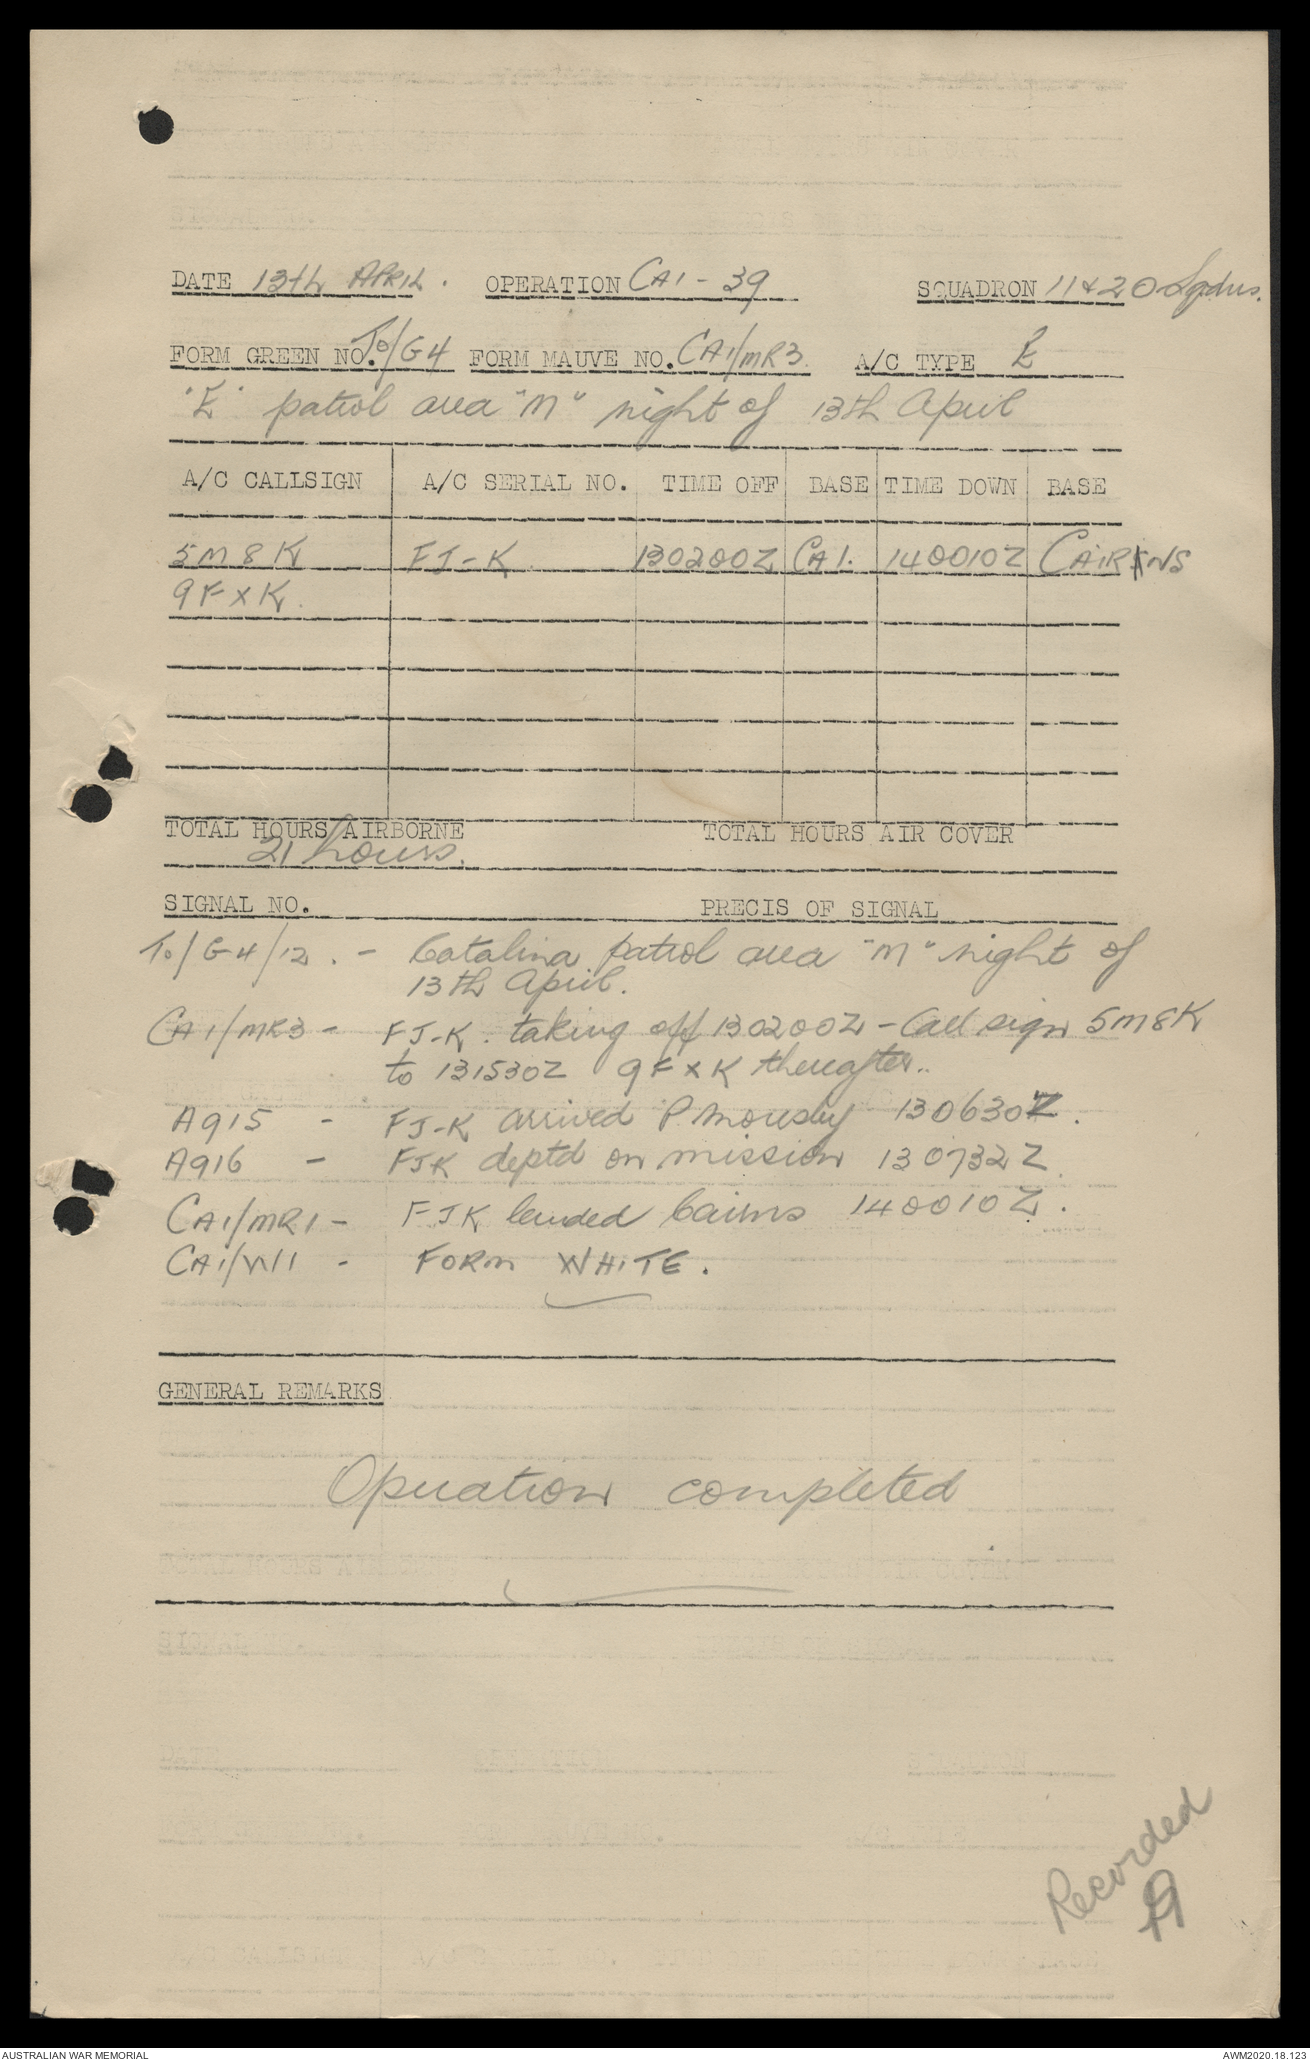 DATE 13th APRIL. OPERATION CA1-39 SQUADRON 11&20 Sqdns.
FORM GREEN NO. To/G4 FORM MAUVE NO. CA1/MR3. A/C TYPE E
"E" patrol area "M" night of 13th April
A/C CALLSIGN A/C SERIAL NO. TIME OFF BASE TIME DOWN BASE
5M8K FJ-K. 130200Z CA1. 140010Z CAIRNS
9FXK.
TOTAL HOURS AIRBORNE TOTAL HOURS AIR COVER
21 hours.
SIGNAL NO. PRECIS OF SIGNAL
To/G4/12. - Catalina patrol area "M" night of
13th April.
CA1/MR3 - FJ-K. taking off 130200Z - Call sign 5M8K
to 131530Z 9FXK thereafter..
A915 - FJ-K arrived P. Moresby 130630Z.
A916 - FJK deptd on mission 130732Z.
CA1/MR1 - FJK landed Cairns 140010Z.
CA1/W11 - FORM WHITE.
GENERAL REMARKS
Operation completed
Recorded
AUSTRALIAN WAR MEMORIAL AWM2020.18.123